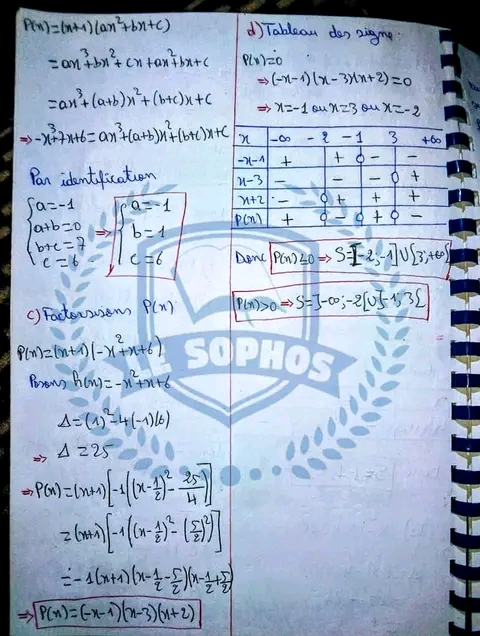 P(x)=(x+1)(ax²+bx+c)
=ax³+bx²+cx+ax²+bx+c
=ax³+(a+b)x²+(b+c)x+c
⇒-x³+7x+6=ax³+(a+b)x²+(b+c)x+c
Par identification
{a=-1
a+b=0
b+c=7
c=6
⇒ {a=-1
b=1
c=6
c) Factorisons P(x)
P(x)=(x+1)(-x²+x+6)
Posons h(x)=-x²+x+6
Δ=(1)²-4(-1)(6)
⇒ Δ=25
⇒P(x)=(x+1)[-1((x-1/2)²-25/4)]
=(x+1)[-1((x-1/2)²-(5/2)²)]
=-1(x+1)(x-1/2-5/2)(x-1/2+5/2)
⇒ P(x)=(-x-1)(x-3)(x+2)
d) Tableau des signe
P(x)=0
⇒(-x-1)(x-3)(x+2)=0
⇒ x=-1 ou x=3 ou x=-2
x -∞ -2 -1 3 +∞
-x-1 + + 0 - -
x-3 - - - 0 +
x+2 - 0 + + +
P(x) + 0 - 0 + 0 -
Donc P(x)≤0 ⇒ S=[-2;-1]U[3;+∞[
P(x)>0 ⇒ S=]-∞;-2[U]-1;3[
LE SOPHOS